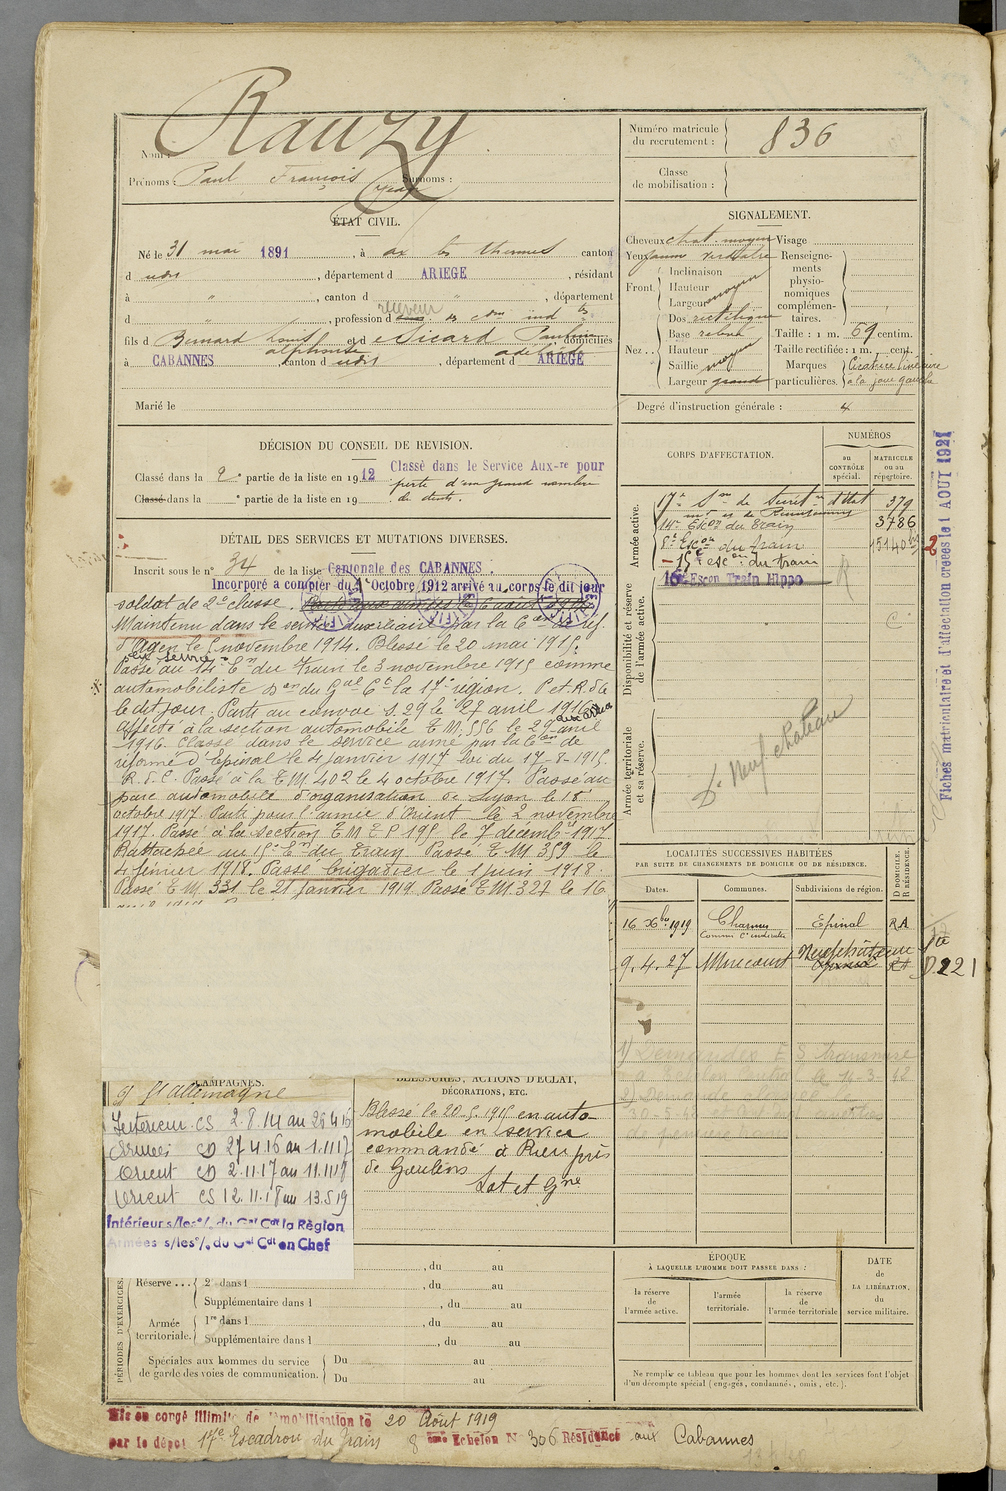 Nom : Rauzy
Prénoms : Paul François Jean Surnoms :
Numéro matricule du recrutement : 836
Classe de mobilisation :
ÉTAT CIVIL.
Né le 31 mai 1891, à ax les thermes canton
d udit, département d ARIEGE, résidant
à " , canton d " , département
d " , profession d receveur des c^ons ind^tes
fils d Bernard Louis alphonse et d e Sicard Pauline adelaïde domiciliés
à CABANNES, canton d udit, département d ARIEGE
Marié le
SIGNALEMENT.
Cheveux chat. moyen Visage
Yeux jaune verdâtre
Front. Inclinaison
Hauteur
Largeur moyen
Nez. Dos rectiligne
Base relevé
Hauteur
Saillie moyen
Largeur grand
Renseignements physionomiques complémentaires.
Taille : 1 m. 69 centim.
Taille rectifiée : 1 m. cent.
Marques particulières. Cicatrice linéaire à la joue gauche
Degré d'instruction générale : 4
DÉCISION DU CONSEIL DE REVISION.
Classé dans la 2e partie de la liste en 1912 Classé dans le Service Aux-re pour
perte d'un grand nombre
Classé dans la e partie de la liste en 19 de dents.
DÉTAIL DES SERVICES ET MUTATIONS DIVERSES.
Inscrit sous le n° 34 de la liste Cantonale des CABANNES
Incorporé a compter du 1er Octobre 1912 arrivé au corps le dit jour
soldat de 2e classe.
Maintenu dans le service auxiliaire par la Con de réf.
d'Agen le 5 novembre 1914. Blessé le 20 mai 1915.
en service
Passé au 14e Eon du Train le 3 novembre 1915 comme
automobiliste Don du Gal Ct la 17e région. P et R. d C
le dit jour. Parti au convoi S. 29 le 27 avril 1916
aux armées
Affecté à la section automobile T M. 556 le 29 avril
1916. Classé dans le service armé par la Con de
réforme d'Epinal le 4 janvier 1917 loi du 17-8-1915
R. d C. Passé à la T M 402 le 4 octobre 1917. Passé au
parc automobile d'organisation de Lyon le 18
octobre 1917. Parti pour l'armée d'Orient le 2 novembre
1917. Passé à la section T M E S 195 le 7 décembre 1917
Rattachée au 15e Eon du Train Passé T M 359 le
4 février 1918. Passé brigadier le 1 juin 1918.
Passé T M. 331 le 21 janvier 1919. Passé T M. 327 le 16
CORPS D'AFFECTATION.
NUMÉROS
au CONTRÔLE spécial.
MATRICULE ou au répertoire.
Armée active.
17e Son de Secrét. d'Etat 379
14e Eson du Train 3786
8e Eson du Train
15e eson du train
16e Escon Train Hippo
Disponibilité et réserve de l'armée active.
Armée territoriale et sa réserve.
Dt Neufchateau
Fiches matriculaire et d'affectation créées le 1 AOUT 1921
LOCALITÉS SUCCESSIVES HABITÉES
PAR SUITE DE CHANGEMENTS DE DOMICILE OU DE RÉSIDENCE.
Dates. Communes. Subdivisions de région. D DOMICILE. R RÉSIDENCE.
16 Xbre 1919 Charmes Epinal RA
Commis Ct indirectes
9.4.27 Mirecourt Neufchâteau
1) Demander E S
CAMPAGNES.
c/ l'Allemagne
Intérieur CS 2.8.14 au 26 4 16
Armées CD 27 4.16 au 1.11 17
Orient CD 2.11.17 au 11.11 18
Orient CS 12.11.18 au 13.5 19
Intérieur s/les o/. du Gal Cdt la Région
Armées s/les o/. du Gal Cdt en Chef
BLESSURES, ACTIONS D'ÉCLAT,
DÉCORATIONS, ETC.
Blessé le 20-5-1915 en auto-
mobile en service
commandé à Rieu près
de Goulens
Lot et Gne
PÉRIODES D'EXERCICES.
, du au
Réserve... 2e dans l , du au
Supplémentaire dans l , du au
Armée territoriale. 1re dans l , du au
Supplémentaire dans l , du au
Spéciales aux hommes du service de garde des voies de communication. Du au
Du au
ÉPOQUE
À LAQUELLE L'HOMME DOIT PASSER DANS :
la réserve de l'armée active.
l'armée territoriale.
la réserve de l'armée territoriale
DATE de LA LIBÉRATION. du service militaire.
Ne remplir ce tableau que pour les hommes dont les services font l'objet
d'un décompte spécial (engagés, condamnés, omis, etc.).
Mis en congé illimité de démobilisation le 20 Août 1919
par le dépot 17e Escadron du Train 8 ème Echelon N° 306 Résidence aux Cabannes